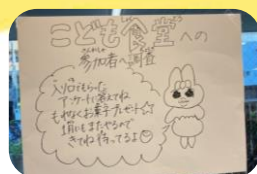 こども食堂への
さんかしゃ
参加者へ調査
入り口でもらった
アンケートに答えてね
もれなくお菓子プレゼント
1月いもまたやるので
きてね待ってるよ